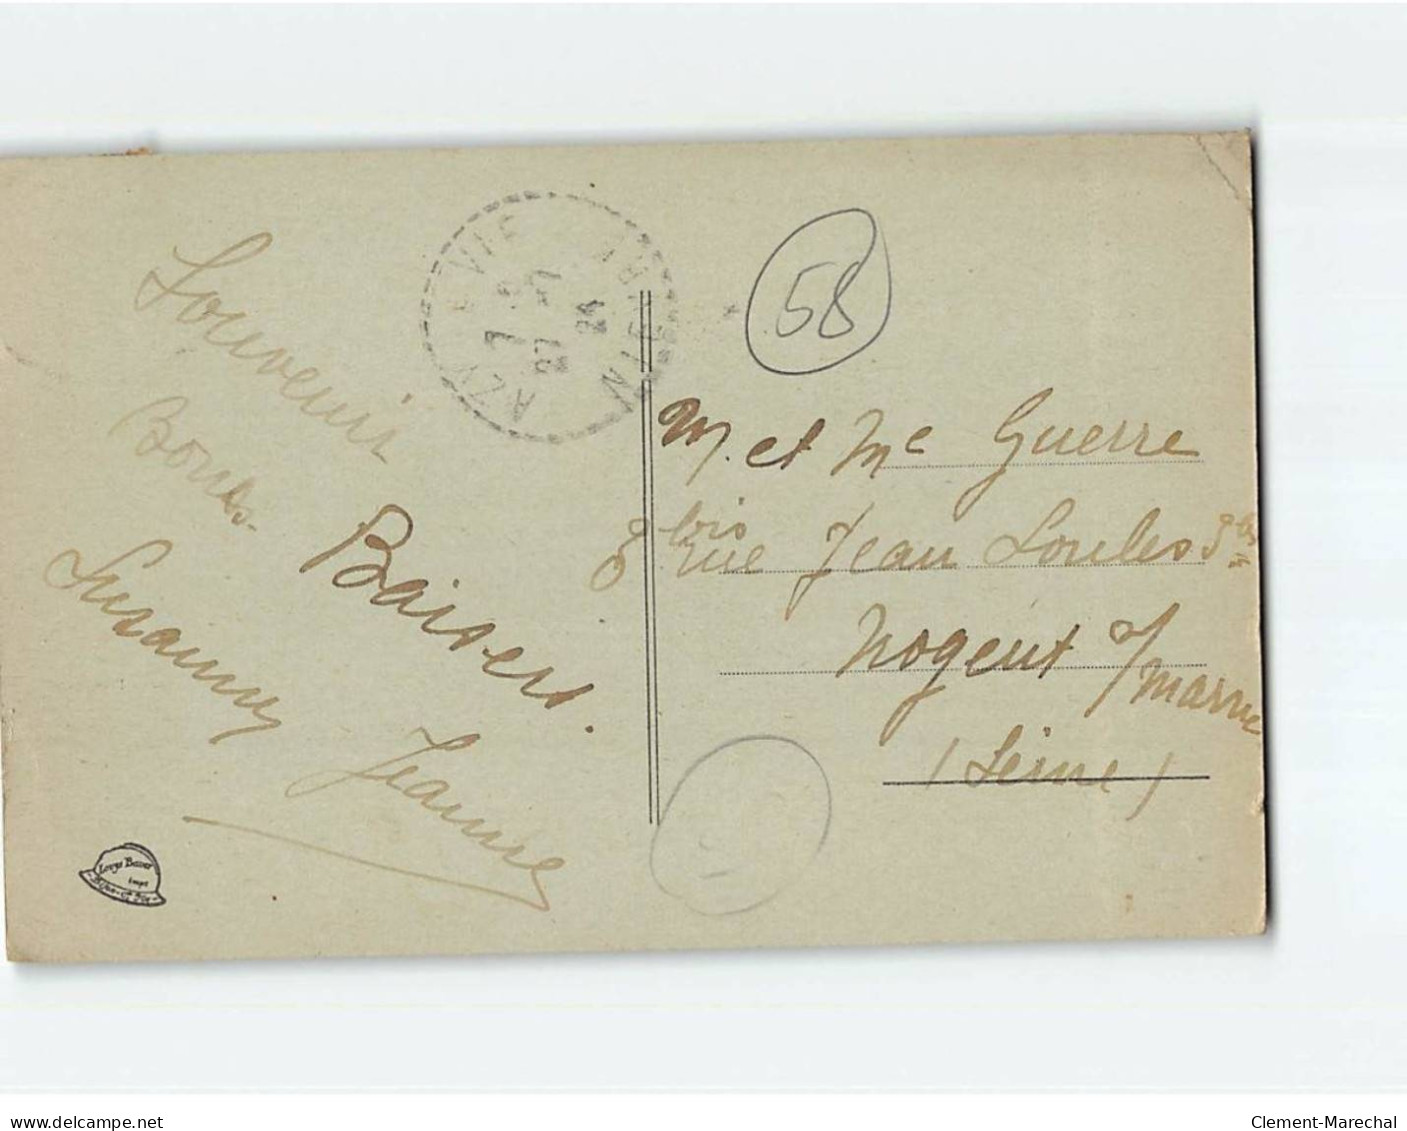 Souvenir
Bons
Baisers.
Suzanne
Jeanne
AZY LE VIF
NIÈVRE
7
27 - 7
24
58
M. et Me Guerre
8 bis rue Jean Soulès
Nogent s/ marne
(Seine)
Louys Bauer
Dijon
www.delcampe.net
Clement-Marechal